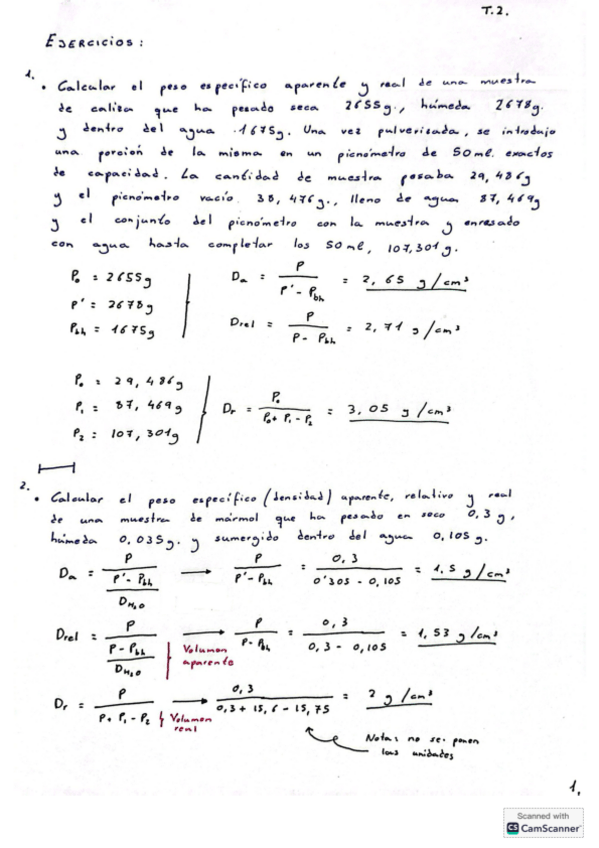 T.2.
EJERCICIOS:
1.
• Calcular el peso específico aparente y real de una muestra
de caliza que ha pesado seca 2655g., húmeda 2678g.
y dentro del agua 1675g. Una vez pulverizada, se introdujo
una porción de la misma en un picnómetro de 50ml. exactos
de capacidad. La cantidad de muestra pesaba 29,486g
y el picnómetro vacío 38,476g., lleno de agua 87,469g
y el conjunto del picnómetro con la muestra y enrasado
con agua hasta completar los 50ml, 107,301g.
P₀ = 2655g
P' = 2678g
Pbh = 1675g
Da = P / (P' - Pbh) = 2,65 g/cm³
Drel = P / (P - Pbh) = 2,71 g/cm³
P₀ = 29,486g
P₁ = 87,469g
P₂ = 107,301g
Dr = P₀ / (P₀ + P₁ - P₂) = 3,05 g/cm³
2.
• Calcular el peso específico (densidad) aparente, relativo y real
de una muestra de mármol que ha pesado en seco 0,3g,
húmeda 0,035g. y sumergido dentro del agua 0,105g.
Da = P / ((P' - Pbh) / DH₂O) → P / (P' - Pbh) = 0,3 / (0'305 - 0,105) = 1,5 g/cm³
Drel = P / ((P - Pbh) / DH₂O) → P / (P - Pbh) = 0,3 / (0,3 - 0,105) = 1,53 g/cm³
Volumen
aparente
Dr = P / (P + P₁ - P₂) → 0,3 / (0,3 + 15,6 - 15,75) = 2 g/cm³
Volumen
real
Nota: no se ponen
las unidades
1.
Scanned with
CS CamScanner